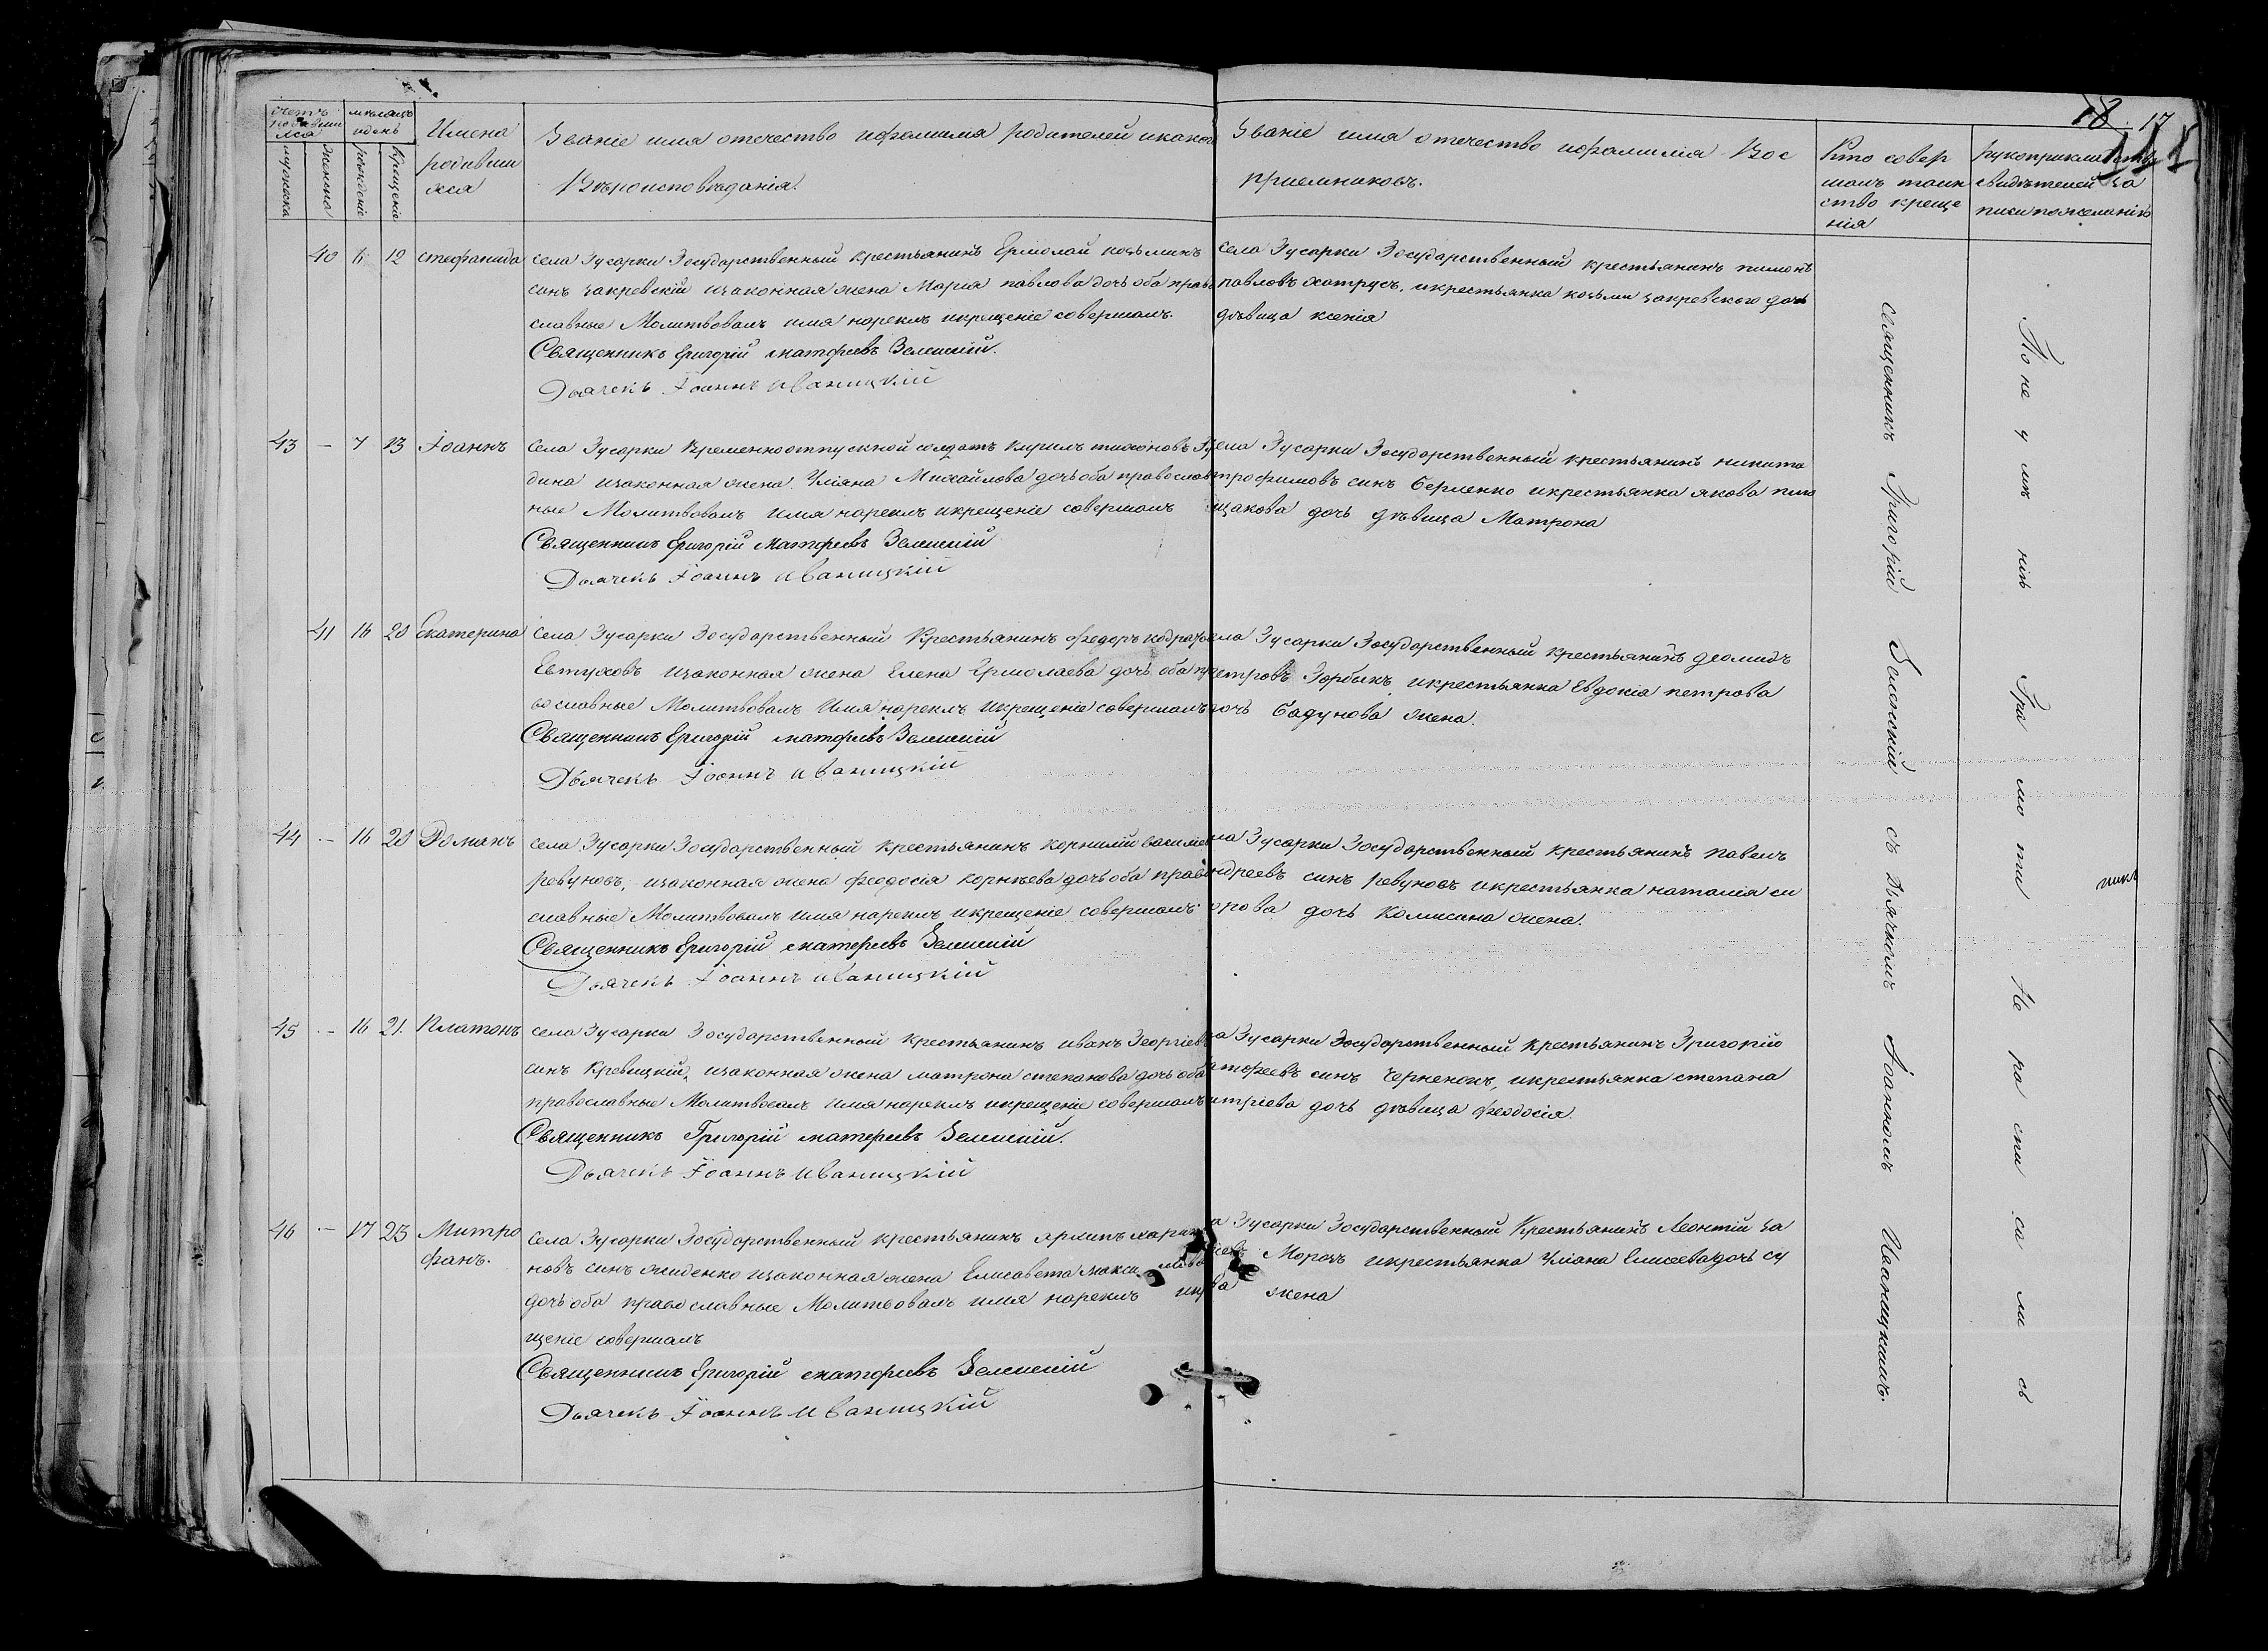 18 17
111
счетъ родивши лса
мѣсяцъ и день
мужеска
женска
рождение
Крещение
Имена родивши лся
Званіе имя отечество ифамилія родителей икакого
Вѣроисповѣданія.
Званіе имя отечество ифамиліа Вос
приемниковъ.
Кто совер
шалъ таин
ство креще
нія
рукоприкладство
свидѣтелей за
писи пожеланію
40 6 12 стефанида
села Гусарки Государственный крестьянинъ Ермолай козьминъ
синъ закревскій изаконная жена Мария павлова дочь оба право
славные Молитвовалъ имя нареклъ икрещеніе совершалъ.
Священникъ Григорій матфеевъ Зеленскій.
Дьячекъ Іоаннъ иваницкій
села Гусарки Государственный крестьянинъ пимонъ
павловъ хатрусъ, икрестьянка козьми закревского дочь
дѣвица ксенія
43 — 7 13 Іоаннъ
села Гусарки Временноотпускной солдатъ Кирилъ тихоновъ
дина изаконная жена Уліяна Михайлова дочь оба православ
ные Молитвовалъ имя нареклъ икрещеніе совершалъ
Священникъ Григорій Матфеевъ Зеленскій
Дьячекъ Іоаннъ иваницкій
села Гусарки Государственный крестьянинъ никита
трофимовъ синъ берленко икрестьянка якова
щакова дочь дѣвица Матрона
41 16 20 Екатерина
села Гусарки Государственный Крестьянинъ федеръ кодратовъ
Евтуховъ изаконная жена Елена Ермолаева дочь оба пра
вославные Молитвовалъ Имя нареклъ икрещеніе совершалъ
Священникъ Григорій матфеевъ Зеленскій
Дьячекъ Іоаннъ иваницкій
села Гусарки Государственный крестьянинъ деомидъ
петровъ Горбынъ, икрестьянка Евдокія петрова
дочь бадунова жена.
44 — 16 20 Романъ
села Гусарки Государственный крестьянинъ корнилій василіев
ревуновъ, изаконная жена феодосія корнѣева дочь оба право
славные Молитвовалъ имя нареклъ икрещеніе совершалъ
Священникъ Григорій матфеевъ Зеленскій
Дьячекъ Іоаннъ иваницкій
села Гусарки Государственный крестьянинъ павелъ
андреевъ синъ ревуновъ икрестьянка наталія си
дорова дочь Комисина жена.
45 — 16 21. Платонъ
села Гусарки Государственный крестьянинъ иванъ Георгіевъ
синъ Кревицкій, изаконная жена матрона степанова дочь оба
православные Молитвовалъ имя нареклъ икрещеніе совершалъ
Священникъ Григорій матфеевъ Зеленскій.
Дьячекъ Іоаннъ иваницкій
села Гусарки Государственный Крестьянинъ Григорій
матфеевъ синъ Черненокъ, икрестьянка степана
дмитріева дочь дѣвица феодосія
46 — 17 23 Митро
фанъ.
села Гусарки Государственный крестьянинъ ярлипъ харито
новъ синъ жиденко изаконная жена Елисавета макси мова
дочь оба православные Молитвовалъ имя нареклъ икре
щеніе совершалъ
Священникъ Григорій матфеевъ Зеленскій
Дьячекъ Іоаннъ иваницкій
села Гусарки Государственный Крестьянинъ Леонтій за
Морозъ икрестьянка Уліана Елисеева дочь су
ва жена
священникъ Григорій Зеленскій съ Дьячкомъ Іоанномъ Иваницкимъ.
По не у мѣ нію Гра мо ти Не ра спи са ли сь